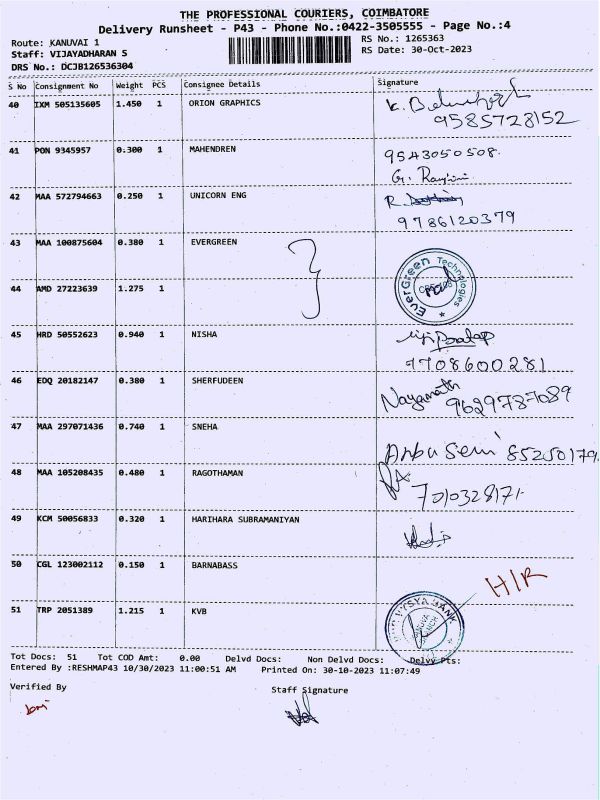 THE PROFESSIONAL COURIERS, COIMBATORE
Delivery Runsheet - P43 - Phone No.:0422-3505555 - Page No.:4
Route: KANUVAI 1
RS No.: 1265363
Staff: VIJAYADHARAN S
RS Date: 30-Oct-2023
DRS No.: DCJB126536304
S No Consignment No Weight PCS Consignee Details Signature
40 IXM 505135605 1.450 1 ORION GRAPHICS
9585728152
41 PON 9345957 0.300 1 MAHENDREN 9543050508.
G.
42 MAA 572794663 0.250 1 UNICORN ENG R.
9786120379
43 MAA 100875604 0.380 1 EVERGREEN
EverGreen Technologies
44 AMD 27223639 1.275 1
45 HRD 50552623 0.940 1 NISHA
7708600281
46 EDQ 20182147 0.380 1 SHERFUDEEN
9629787089
47 MAA 297071436 0.740 1 SNEHA
Anbu Selvi 85250179
48 MAA 105208435 0.480 1 RAGOTHAMAN
7010328171
49 KCM 50056833 0.320 1 HARIHARA SUBRAMANIYAN
50 CGL 123002112 0.150 1 BARNABASS
H/R
51 TRP 2051389 1.215 1 KVB
VYSYA BANK
Tot Docs: 51 Tot COD Amt: 0.00 Delvd Docs: Non Delvd Docs: Delvy Pts:
Entered By :RESHMAP43 10/30/2023 11:00:51 AM Printed On: 30-10-2023 11:07:49
Verified By
Staff Signature